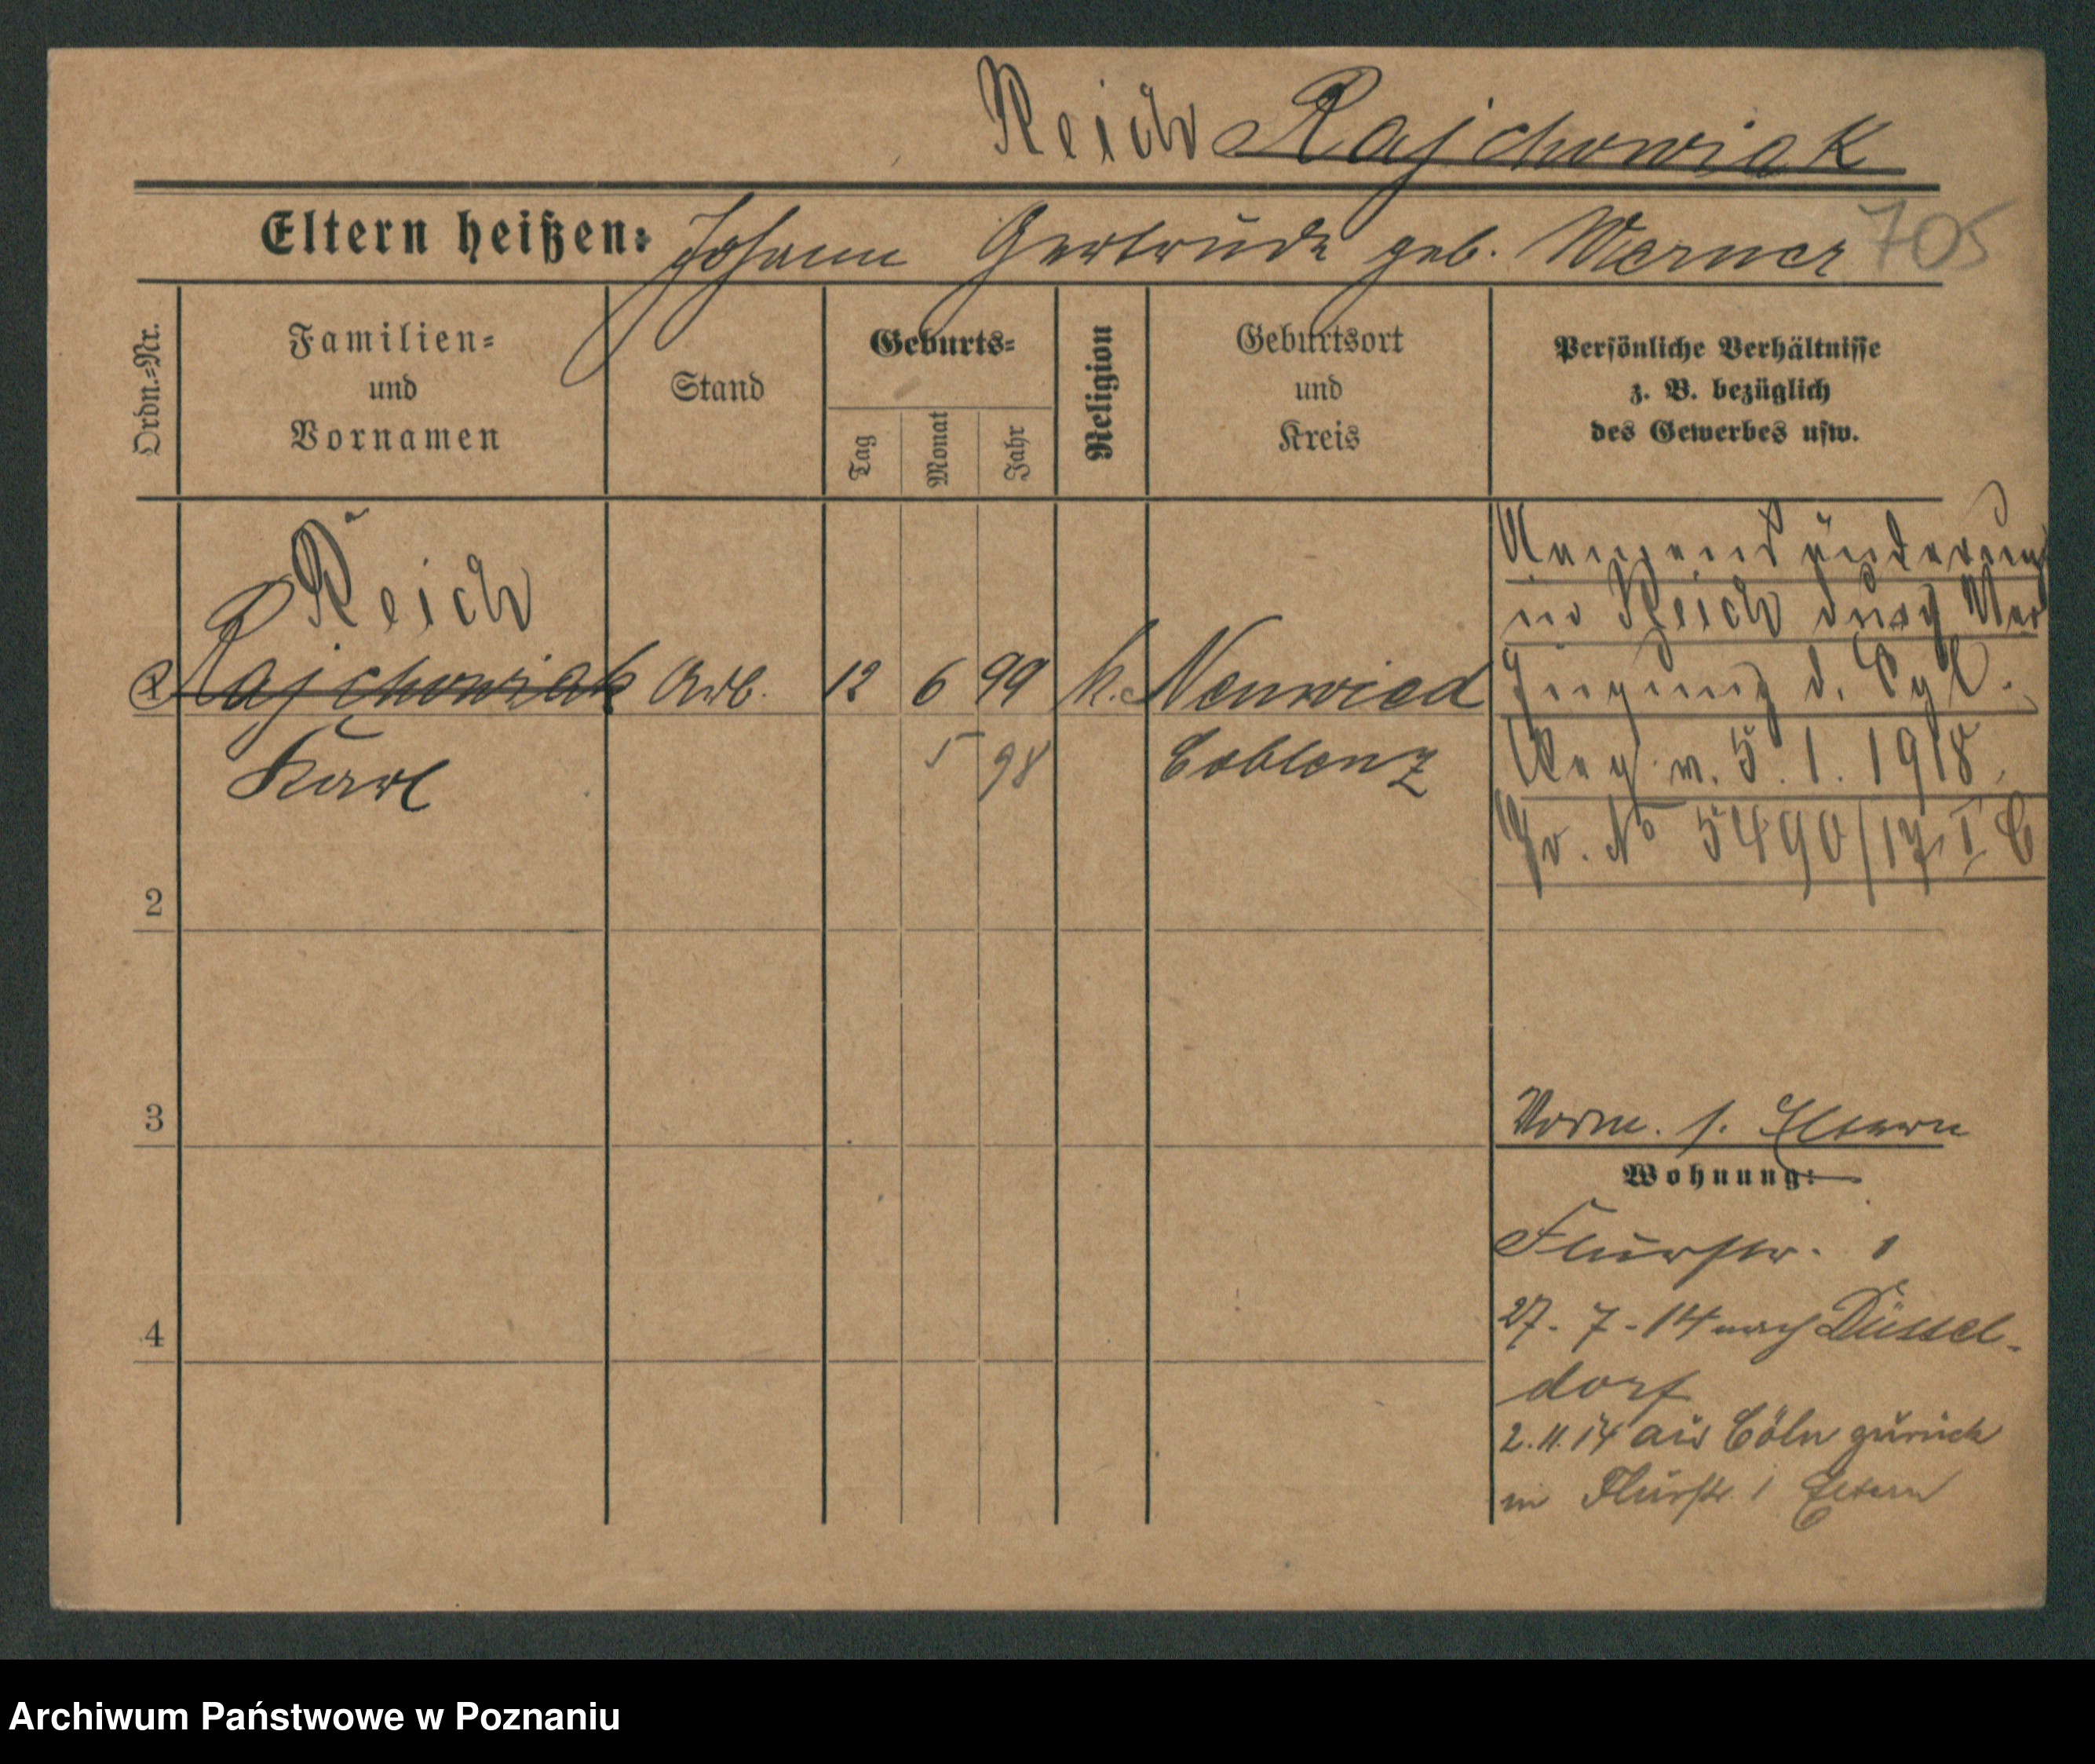 Reich Rajchowiak
Eltern heißen: Johann Gertrude geb. Werner 705
Ordn.-Nr.
Familien-
und
Vornamen
Stand
Geburts-
Tag
Monat
Jahr
Religion
Geburtsort
und
Kreis
Persönliche Verhältnisse
z. B. bezüglich
des Gewerbes usw.
Reich
Rajchowiak Arb. 12 6 99 k. Neuwied
Karl 5 98 Coblenz
Namensänderung
in Reich durch Ver
fügung d. Kgl.
Reg. v. 5. 1. 1918.
No 5490/17 I C
2
3
4
Vorm. s. Eltern
Wohnung:
Flurstr. 1
27. 7. 14 nach Düssel-
dorf
2.11.14 aus Cöln zurück
in Flurstr. 1 Eltern
Archiwum Państwowe w Poznaniu